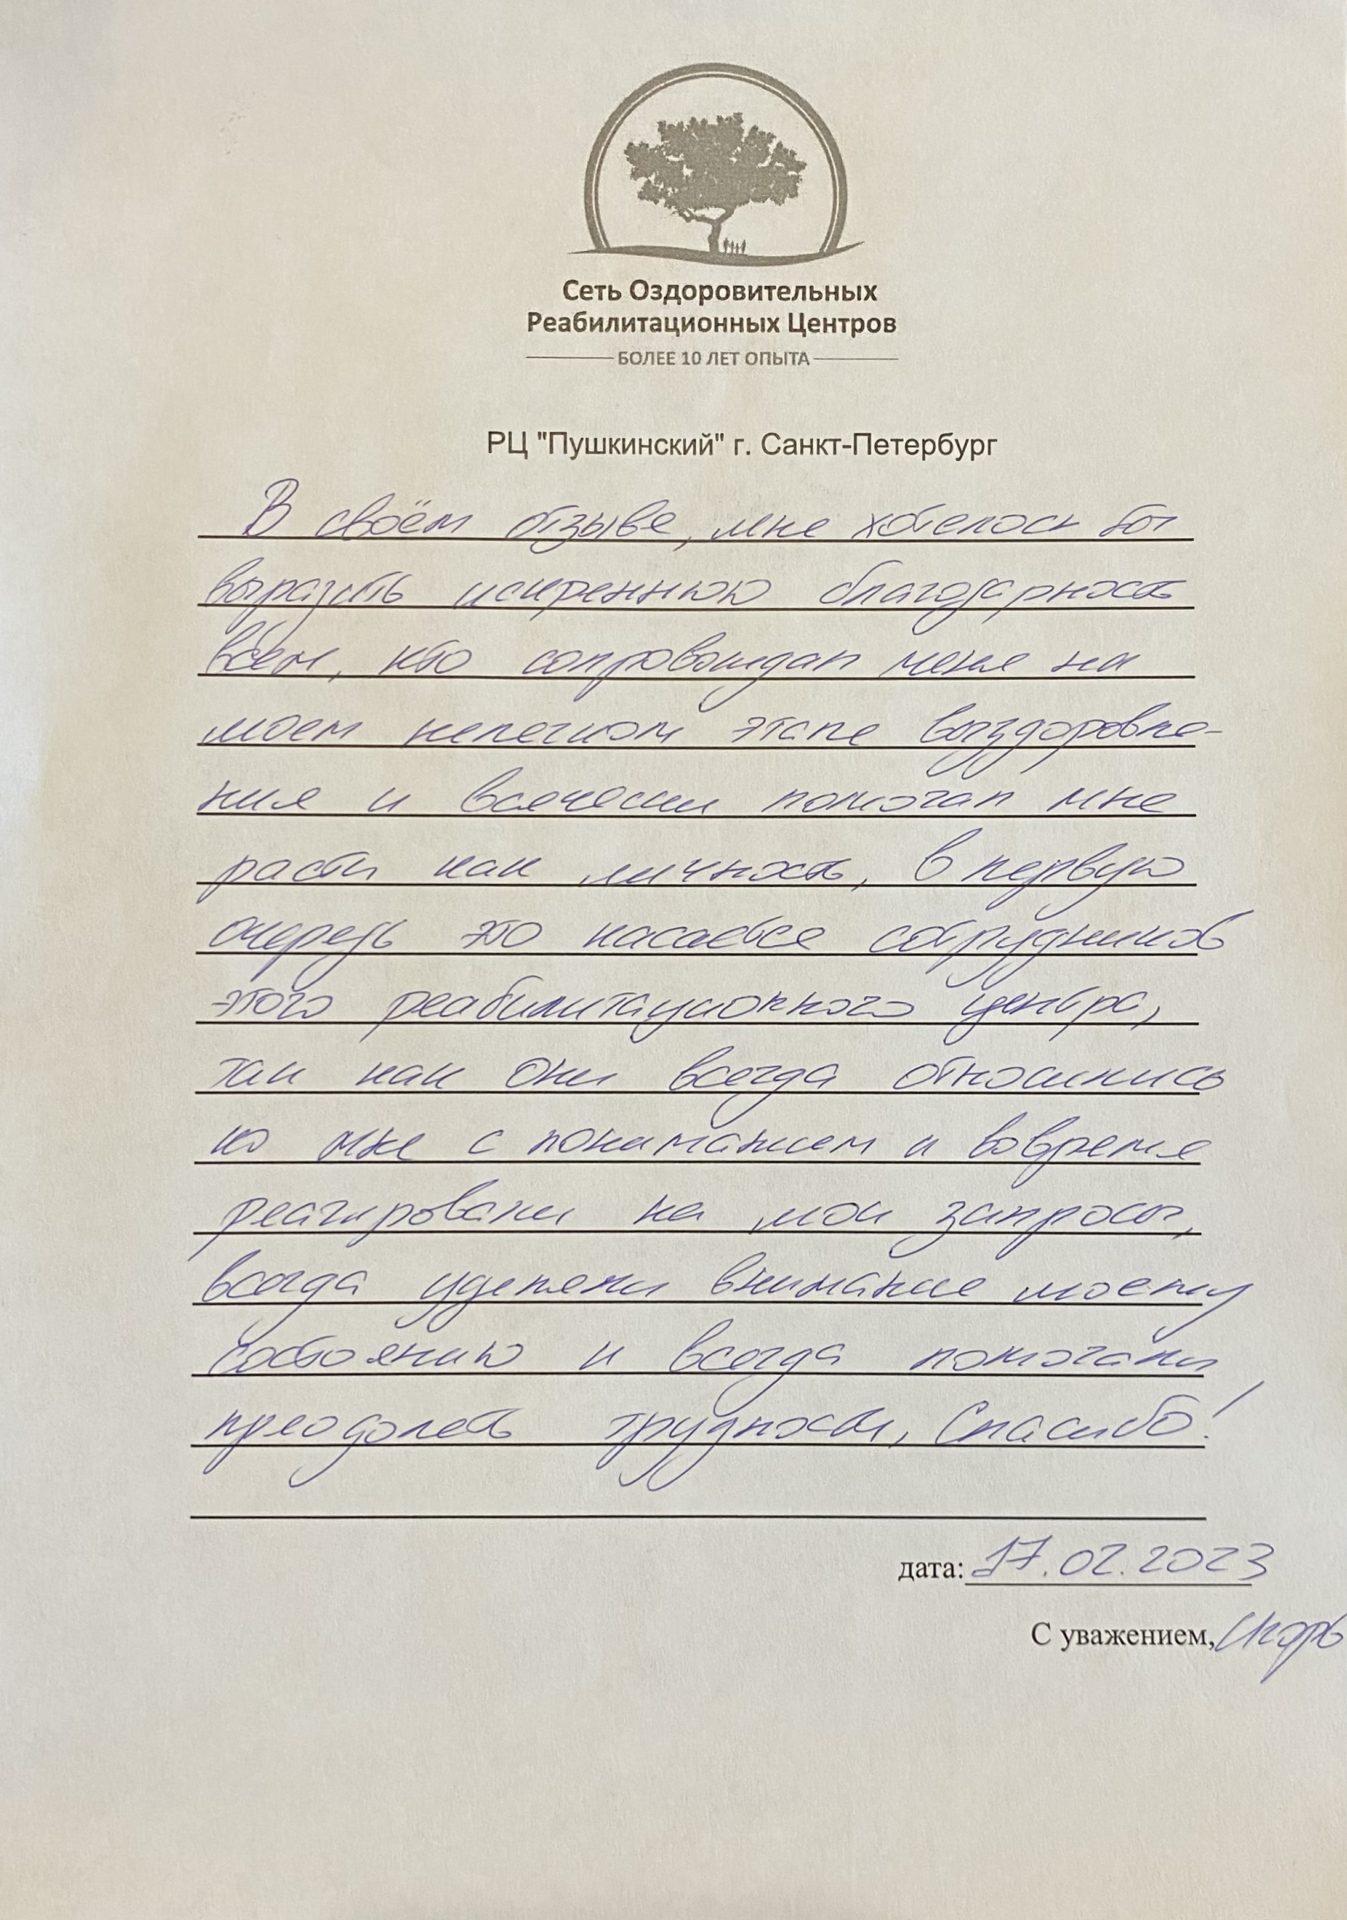 Сеть Оздоровительных
Реабилитационных Центров
БОЛЕЕ 10 ЛЕТ ОПЫТА
РЦ "Пушкинский" г. Санкт-Петербург
В своём отзыве, мне хотелось бы
выразить искреннюю благодарность
всем, кто сопровождал меня на
моем нелегком этапе выздоровле-
ния и всячески помогал мне
расти как личность, в первую
очередь это касается сотрудников
этого реабилитационного центра,
так как они всегда относились
ко мне с пониманием и вовремя
реагировали на мои запросы,
всегда уделяли внимание моему
состоянию и всегда помогали
преодолеть трудности, Спасибо!
дата: 17.02.2023
С уважением, Игорь